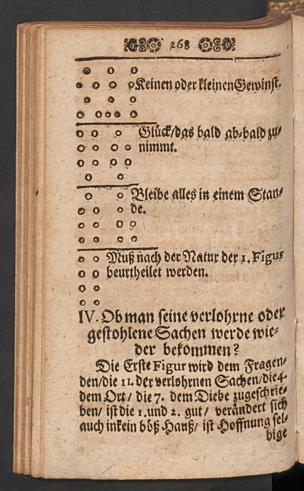 268
Keinen oder kleinen Gewinst.
Glück/das bald ab-bald zu-
nimmt.
Bleibe alles in einem Stan-
de.
Muß nach der Natur der 1. Figur
beurtheilet werden.
IV. Ob man seine verlohrne oder
gestohlene Sachen werde wie-
der bekommen?
Die Erste Figur wird dem Fragen-
den/die 11. der verlohrnen Sachen/die 4.
dem Ort/ die 7. dem Diebe zugeschrie-
ben/ ist die 1. und 2. gut/ verändert sich
auch in kein böß Hauß/ ist Hoffnung sel-
bige